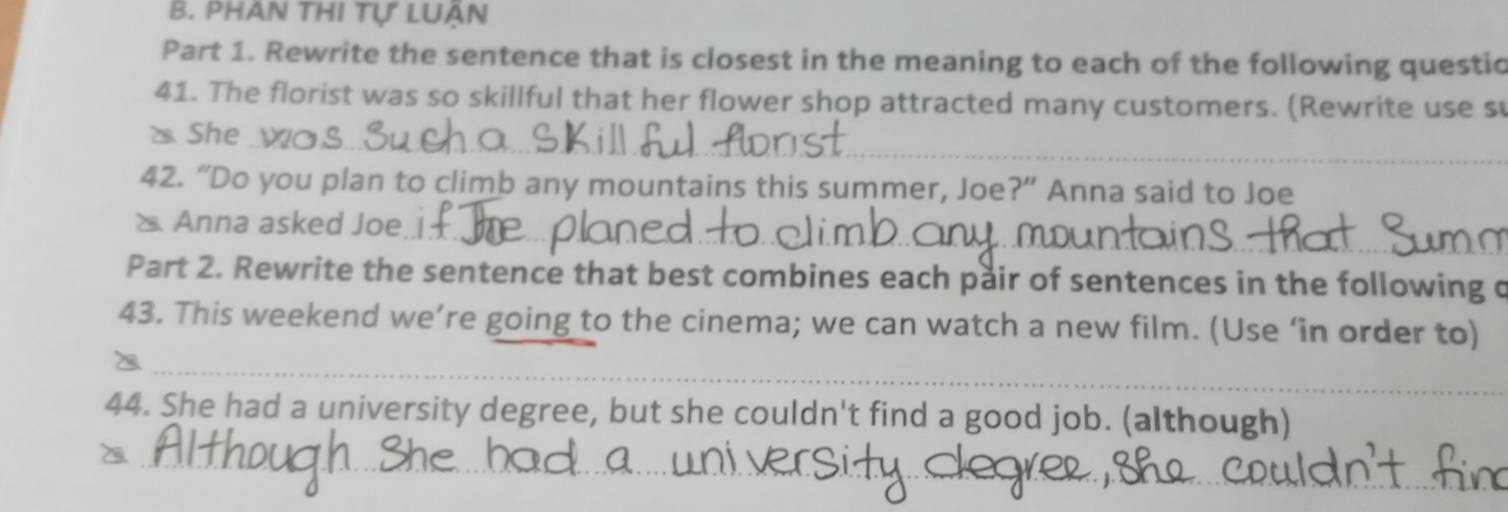 B. PHẦN THI TỰ LUẬN
Part 1. Rewrite the sentence that is closest in the meaning to each of the following questio
41. The florist was so skillful that her flower shop attracted many customers. (Rewrite use su
She was such a skillful florist
42. “Do you plan to climb any mountains this summer, Joe?” Anna said to Joe
Anna asked Joe if Joe planed to climb any mountains that Summ
Part 2. Rewrite the sentence that best combines each pair of sentences in the following q
43. This weekend we’re going to the cinema; we can watch a new film. (Use ‘in order to)
44. She had a university degree, but she couldn't find a good job. (although)
Although She had a university degree, she couldn't find